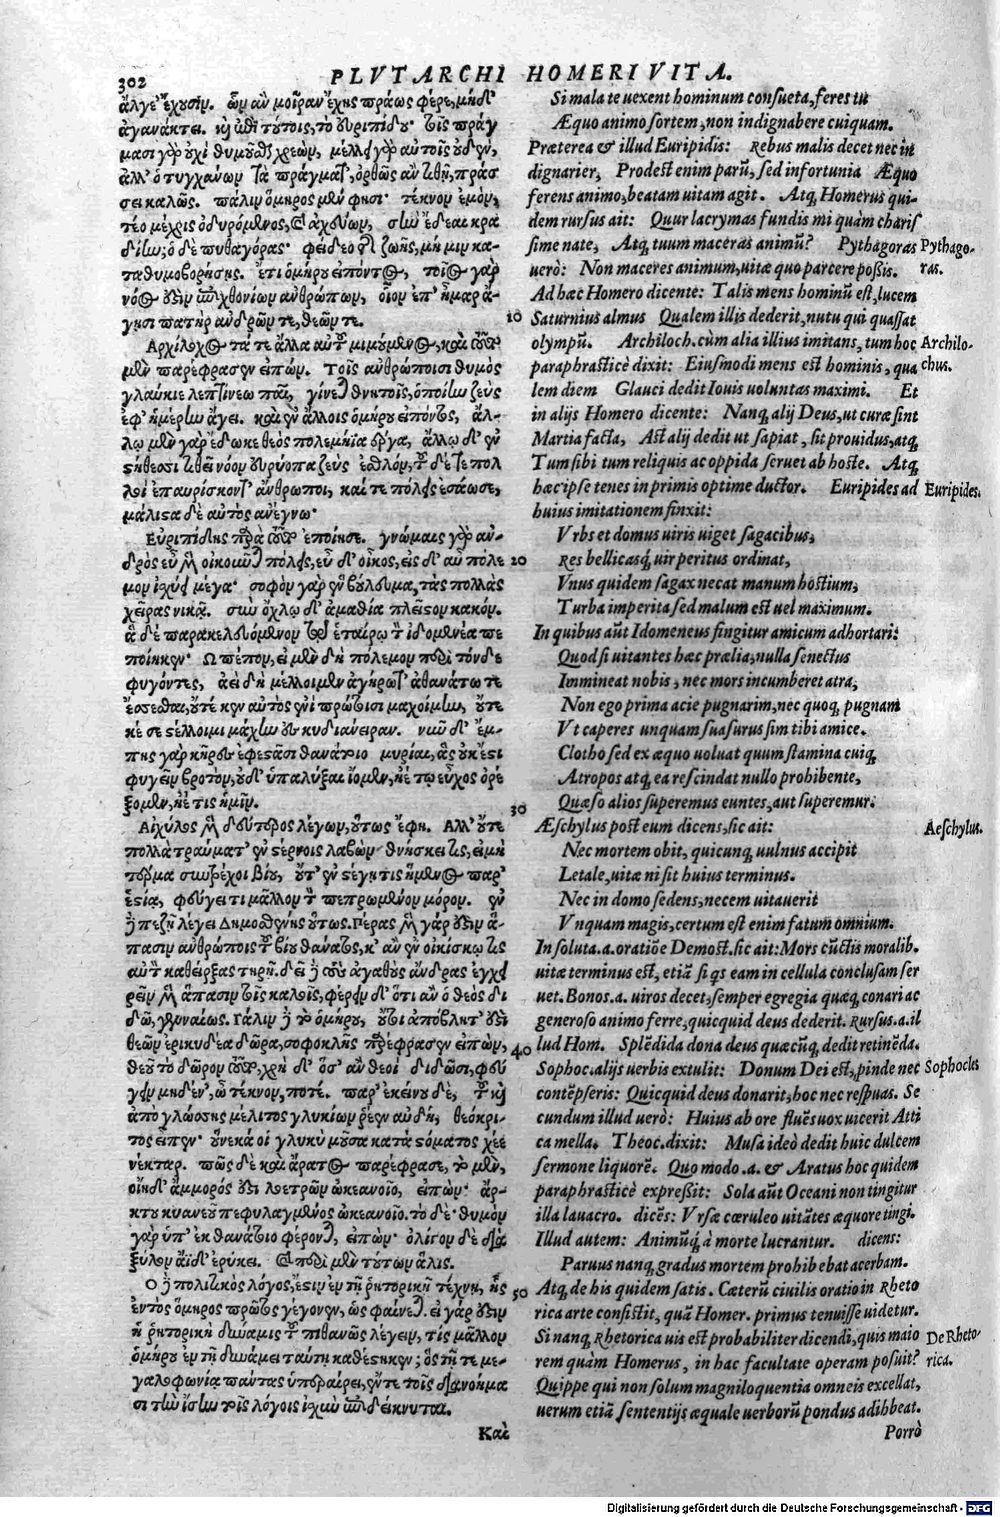 302
PLVTARCHI HOMERI VITA.
ἄλγε' ἔχουσιν. ὧν ἂν μοῖραν ἔχῃς πράως φέρε, μηδ'
ἀγανάκτει. καὶ ἐπὶ τούτοις, τὸ εὐριπίδου· τοῖς πράγ
μασι γὰρ οὐχὶ θυμοῦσθαι χρεὼν, μέλλει γὰρ αὐτοῖς οὐδὲν,
ἀλλ' ὁ τυγχάνων τὰ πράγματ', ὀρθῶς ἂν τιθῇ, πράσ
σει καλῶς. πάλιν ὅμηρος μὲν φησι· τέκνον ἐμὸν,
τέο μέχρις ὀδυρόμενος, καὶ ἀχεύων, σὴν ἔδεαι κρα
δίην; ὁ δὲ πυθαγόρας· φείδεο τῆς ζωῆς, μή μιν κα-
ταθυμοβορήσῃς. ἔτι ὁμήρου εἰπόντος, τοῖος γὰρ
νόος ἐστὶν ἐπιχθονίων ἀνθρώπων, οἷον ἐπ' ἦμαρ ἄ-
γησι πατὴρ ἀνδρῶν τε, θεῶν τε.
Ἀρχίλοχος τά τε ἄλλα αὐτὸν μιμούμενος, καὶ τοῦτο
μὲν παρέφρασεν εἰπών. Τοῖς ἀνθρώποισι θυμὸς
γλαύκιε λεπτίνεω παῖ, γίνεται θνητοῖς, ὁποίην ζεὺς
ἐφ' ἡμέρην ἄγει. καὶ ἐν ἄλλοις ὁμήρου εἰπόντος, ἄλ-
λῳ μὲν γὰρ ἔδωκε θεὸς πολεμήϊα ἔργα, ἄλλῳ δ' ἐν
στήθεσσι τιθεῖ νόον εὐρύοπα ζεὺς ἐσθλὸν, τοῦ δέ τε πολ
λοὶ ἐπαυρίσκοντ' ἄνθρωποι, καί τε πόλεις ἐσάωσε,
μάλιστα δὲ αὐτὸς ἀνέγνω·
Εὐριπίδης παρὰ τοῦτο ἐποίησε. γνώμαις γὰρ ἀν-
δρὸς εὖ μὲν οἰκοῦνται πόλεις, εὖ δ' οἶκος, εἰς δ' αὖ πόλε
μον ἰσχύει μέγα· σοφὸν γὰρ ἓν βούλευμα, τὰς πολλὰς
χεῖρας νικᾷ. σὺν ὄχλῳ δ' ἀμαθία πλεῖστον κακόν.
ἃ δὲ παρακελευόμενον τῷ ἑταίρῳ τὸν ἰδομενέα πε
ποίηκεν· Ω πέπον, εἰ μὲν δὴ πόλεμον περὶ τόνδε
φυγόντες, ἀεὶ δὴ μέλλοιμεν ἀγήρωτ' ἀθανάτω τε
ἔσσεσθαι, οὔτε κεν αὐτὸς ἐνὶ πρώτοισι μαχοίμην, οὔτε
κέ σε στέλλοιμι μάχην ἐς κυδιάνειραν. νῦν δ' ἔμ-
πης γὰρ κῆρες ἐφεστᾶσι θανάτοιο μυρίαι, ἃς οὐκ ἔστι
φυγεῖν βροτὸν, οὐδ' ὑπαλύξαι ἴομεν, ἠέ τῳ εὖχος ὀρέ
ξομεν, ἠέ τις ἡμῖν.
Αἰχύλος μὲν δεύτερος λέγων, οὕτως ἔφη. Αλλ' οὔτε
πολλὰ τραύματ' ἐν στέρνοις λαβὼν θνήσκει τις, εἰ μὴ
τέρμα συντρέχοι βίου, οὔτ' ἐν στέγῃ τις ἥμενος παρ'
ἑστίᾳ, φεύγει τι μᾶλλον τὸν πεπρωμένον μόρον. ἐν
δὲ πεζῇ λέγει Δημοσθένης οὕτως. Πέρας μὲν γὰρ ἐστιν ἅ-
πασιν ἀνθρώποις τοῦ βίου θάνατος, κ' ἂν ἐν οἰκίσκῳ τις
αὑτὸν καθείρξας τηρῇ. δεῖ δὲ τοὺς ἀγαθοὺς ἄνδρας ἐγχει
ρεῖν μὲν ἅπασιν τοῖς καλοῖς, φέρειν δ' ὅτι ἂν ὁ θεὸς δι
δῷ, γενναίως. Πάλιν δὲ τοῦ ὁμήρου, οὔτοι ἀπόβλητ' ἐστὶ
θεῶν ἐρικυδέα δῶρα, σοφοκλῆς παρέφρασεν εἰπὼν,
θεοῦ τὸ δῶρον τοῦτο, χρὴ δ' ὅσ' ἂν θεοὶ διδῶσι, φεύ
γειν μηδὲν', ὦ τέκνον, ποτέ. παρ' ἐκείνου δὲ, τοῦ καὶ
ἀπὸ γλώσσης μέλιτος γλυκίων ῥέεν αὐδὴ, θεόκρι-
τος εἶπεν· οὕνεκά οἱ γλυκὺ μοῦσα κατὰ στόματος χέε
νέκταρ. πῶς δὲ καὶ ἄρατος παρέφρασε, τὸ μὲν,
οἴηδ' ἄμμορός ἐστι λοετρῶν ὠκεανοῖο, εἰπών· ἄρ-
κτοι κυανέου πεφυλαγμέναι ὠκεανοῖο. τὸ δὲ· θυμὸν
γὰρ ὑπ' ἐκ θανάτοιο φέρονται, εἰπών· ὀλίγον δὲ διὰ
ξύλον ἄϊδ' ἐρύκει. καὶ περὶ μὲν τούτων ἅλις.
Ο δὲ πολιτικὸς λόγος, ἔστιν ἐν τῇ ῥητορικῇ τέχνῃ, ἧς
ἐντὸς ὅμηρος πρῶτος γέγονεν, ὡς φαίνεται. εἰ γάρ ἐστιν
ἡ ῥητορικὴ δύναμις τοῦ πιθανῶς λέγειν, τίς μᾶλλον
ὁμήρου ἐν τῇ δυνάμει ταύτῃ καθέστηκεν; ὃς τῇ τε με-
γαλοφωνίᾳ πάντας ὑπεραίρει, ἔν τε τοῖς διανοήμα
σι τὴν ἴσην τοῖς λόγοις ἰσχὺν ἐπιδείκνυται.
Καὶ
10
20
30
40
50
Si mala te uexent hominum consueta, feres tu
Æquo animo sortem, non indignabere cuiquam.
Præterea & illud Euripidis: Rebus malis decet nec in
dignarier, Prodest enim parū, sed infortunia Æquo
ferens animo, beatam uitam agit. Atq, Homerus qui-
dem rursus ait: Quur lacrymas fundis mi quàm charis
sime nate, Atq, tuum maceras animū? Pythagoras
uerò: Non maceres animum, uitæ quo parcere possis.
Ad hæc Homero dicente: Talis mens hominū est, lucem
Saturnius almus Qualem illis dederit, nutu qui quassat
olympū. Archiloch. cùm alia illius imitans, tum hoc
paraphrasticè dixit: Eiusmodi mens est hominis, qua
lem diem Glauci dedit Iouis uoluntas maximi. Et
in alijs Homero dicente: Nanq, alij Deus, ut curæ sint
Martia facta, Ast alij dedit ut sapiat, sit prouidus, atq,
Tum sibi tum reliquis ac oppida seruet ab hoste. Atq,
hæc ipse tenes in primis optime ductor. Euripides ad
huius imitationem finxit:
Vrbs et domus uiris uiget sagacibus,
Res bellicasq, uir peritus ordinat,
Vnus quidem sagax necat manum hostium,
Turba imperita sed malum est uel maximum.
In quibus aūt Idomeneus fingitur amicum adhortari:
Quod si uitantes hæc prælia, nulla senectus
Immineat nobis, nec mors incumberet atra,
Non ego prima acie pugnarim, nec quoq, pugnam
Vt caperes unquam suasurus sim tibi amice.
Clotho sed ex æquo uoluat quum stamina cuiq,
Atropos atq, ea rescindat nullo prohibente,
Quæso alios superemus euntes, aut superemur.
Æschylus post eum dicens, sic ait:
Nec mortem obit, quicunq, uulnus accipit
Letale, uitæ ni sit huius terminus.
Nec in domo sedens, necem uitauerit
Vnquam magis, certum est enim fatum omnium.
In soluta .a. oratiōe Demost. sic ait: Mors cūctis moralib.
uitæ terminus est, etiā si qs eam in cellula conclusam ser
uet. Bonos .a. uiros decet, semper egregia quæq, conari ac
generoso animo ferre, quicquid deus dederit. Rursus .a. il
lud Hom. Splēdida dona deus quæcūq, dedit retinēda.
Sophoc. alijs uerbis extulit: Donum Dei est, pinde nec
contēpseris: Quicquid deus donarit, hoc nec respuas. Se
cundum illud uerò: Huius ab ore fluēs uox uicerit Atti
ca mella. Theoc. dixit: Musa ideò dedit huic dulcem
sermone liquorē. Quo modo .a. & Aratus hoc quidem
paraphrasticè expreßit: Sola aūt Oceani non tingitur
illa lauacro. dicēs: Vrsæ cœruleo uitātes æquore tingi.
Illud autem: Animūq, à morte lucrantur. dicens:
Paruus nanq, gradus mortem prohibebat acerbam.
Atq, de his quidem satis. Cæterū ciuilis oratio in Rheto
rica arte consistit, quā Homer. primus tenuisse uidetur.
Si nanq, Rhetorica uis est probabiliter dicendi, quis maio
rem quàm Homerus, in hac facultate operam posuit?
Quippe qui non solum magniloquentia omneis excellat,
uerum etiā sententijs æquale uerborū pondus adihbeat.
Porrò
Pythago-
ras.
Archilo-
chus.
Euripides.
Aeschylus.
Sophocles
De Rheto-
rica.
Digitalisierung gefördert durch die Deutsche Forschungsgemeinschaft - DFG